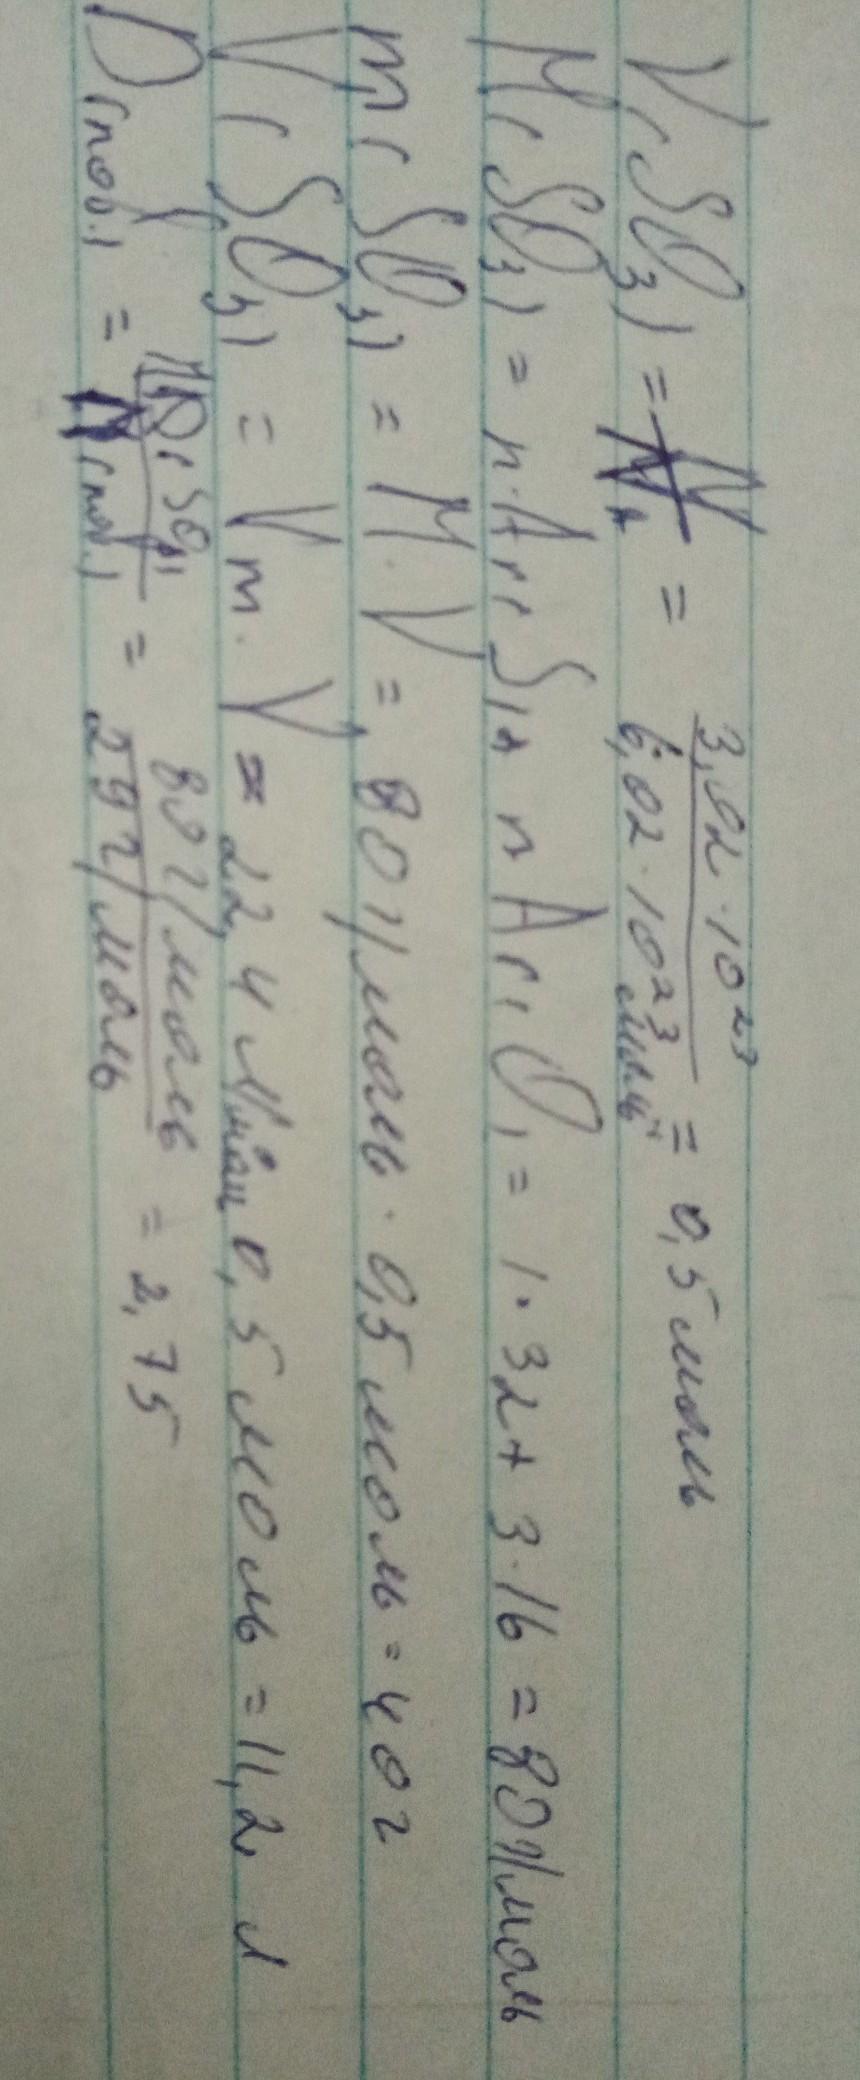 V(SO3) = N/NA = 3,02·10^23 / 6,02·10^23 моль^-1 = 0,5 моль
M(SO3) = n·Ar(S)+ n Ar(O) = 1·32+ 3·16 = 80 г/моль
m(SO3) = M·V = 80 г/моль · 0,5 моль = 40 г
V(SO3) = Vm·V = 22,4 л/моль 0,5 моль = 11,2 л
D(пов.) = (SO3) / (пов.) = 80 г/моль / 29 г/моль = 2,75